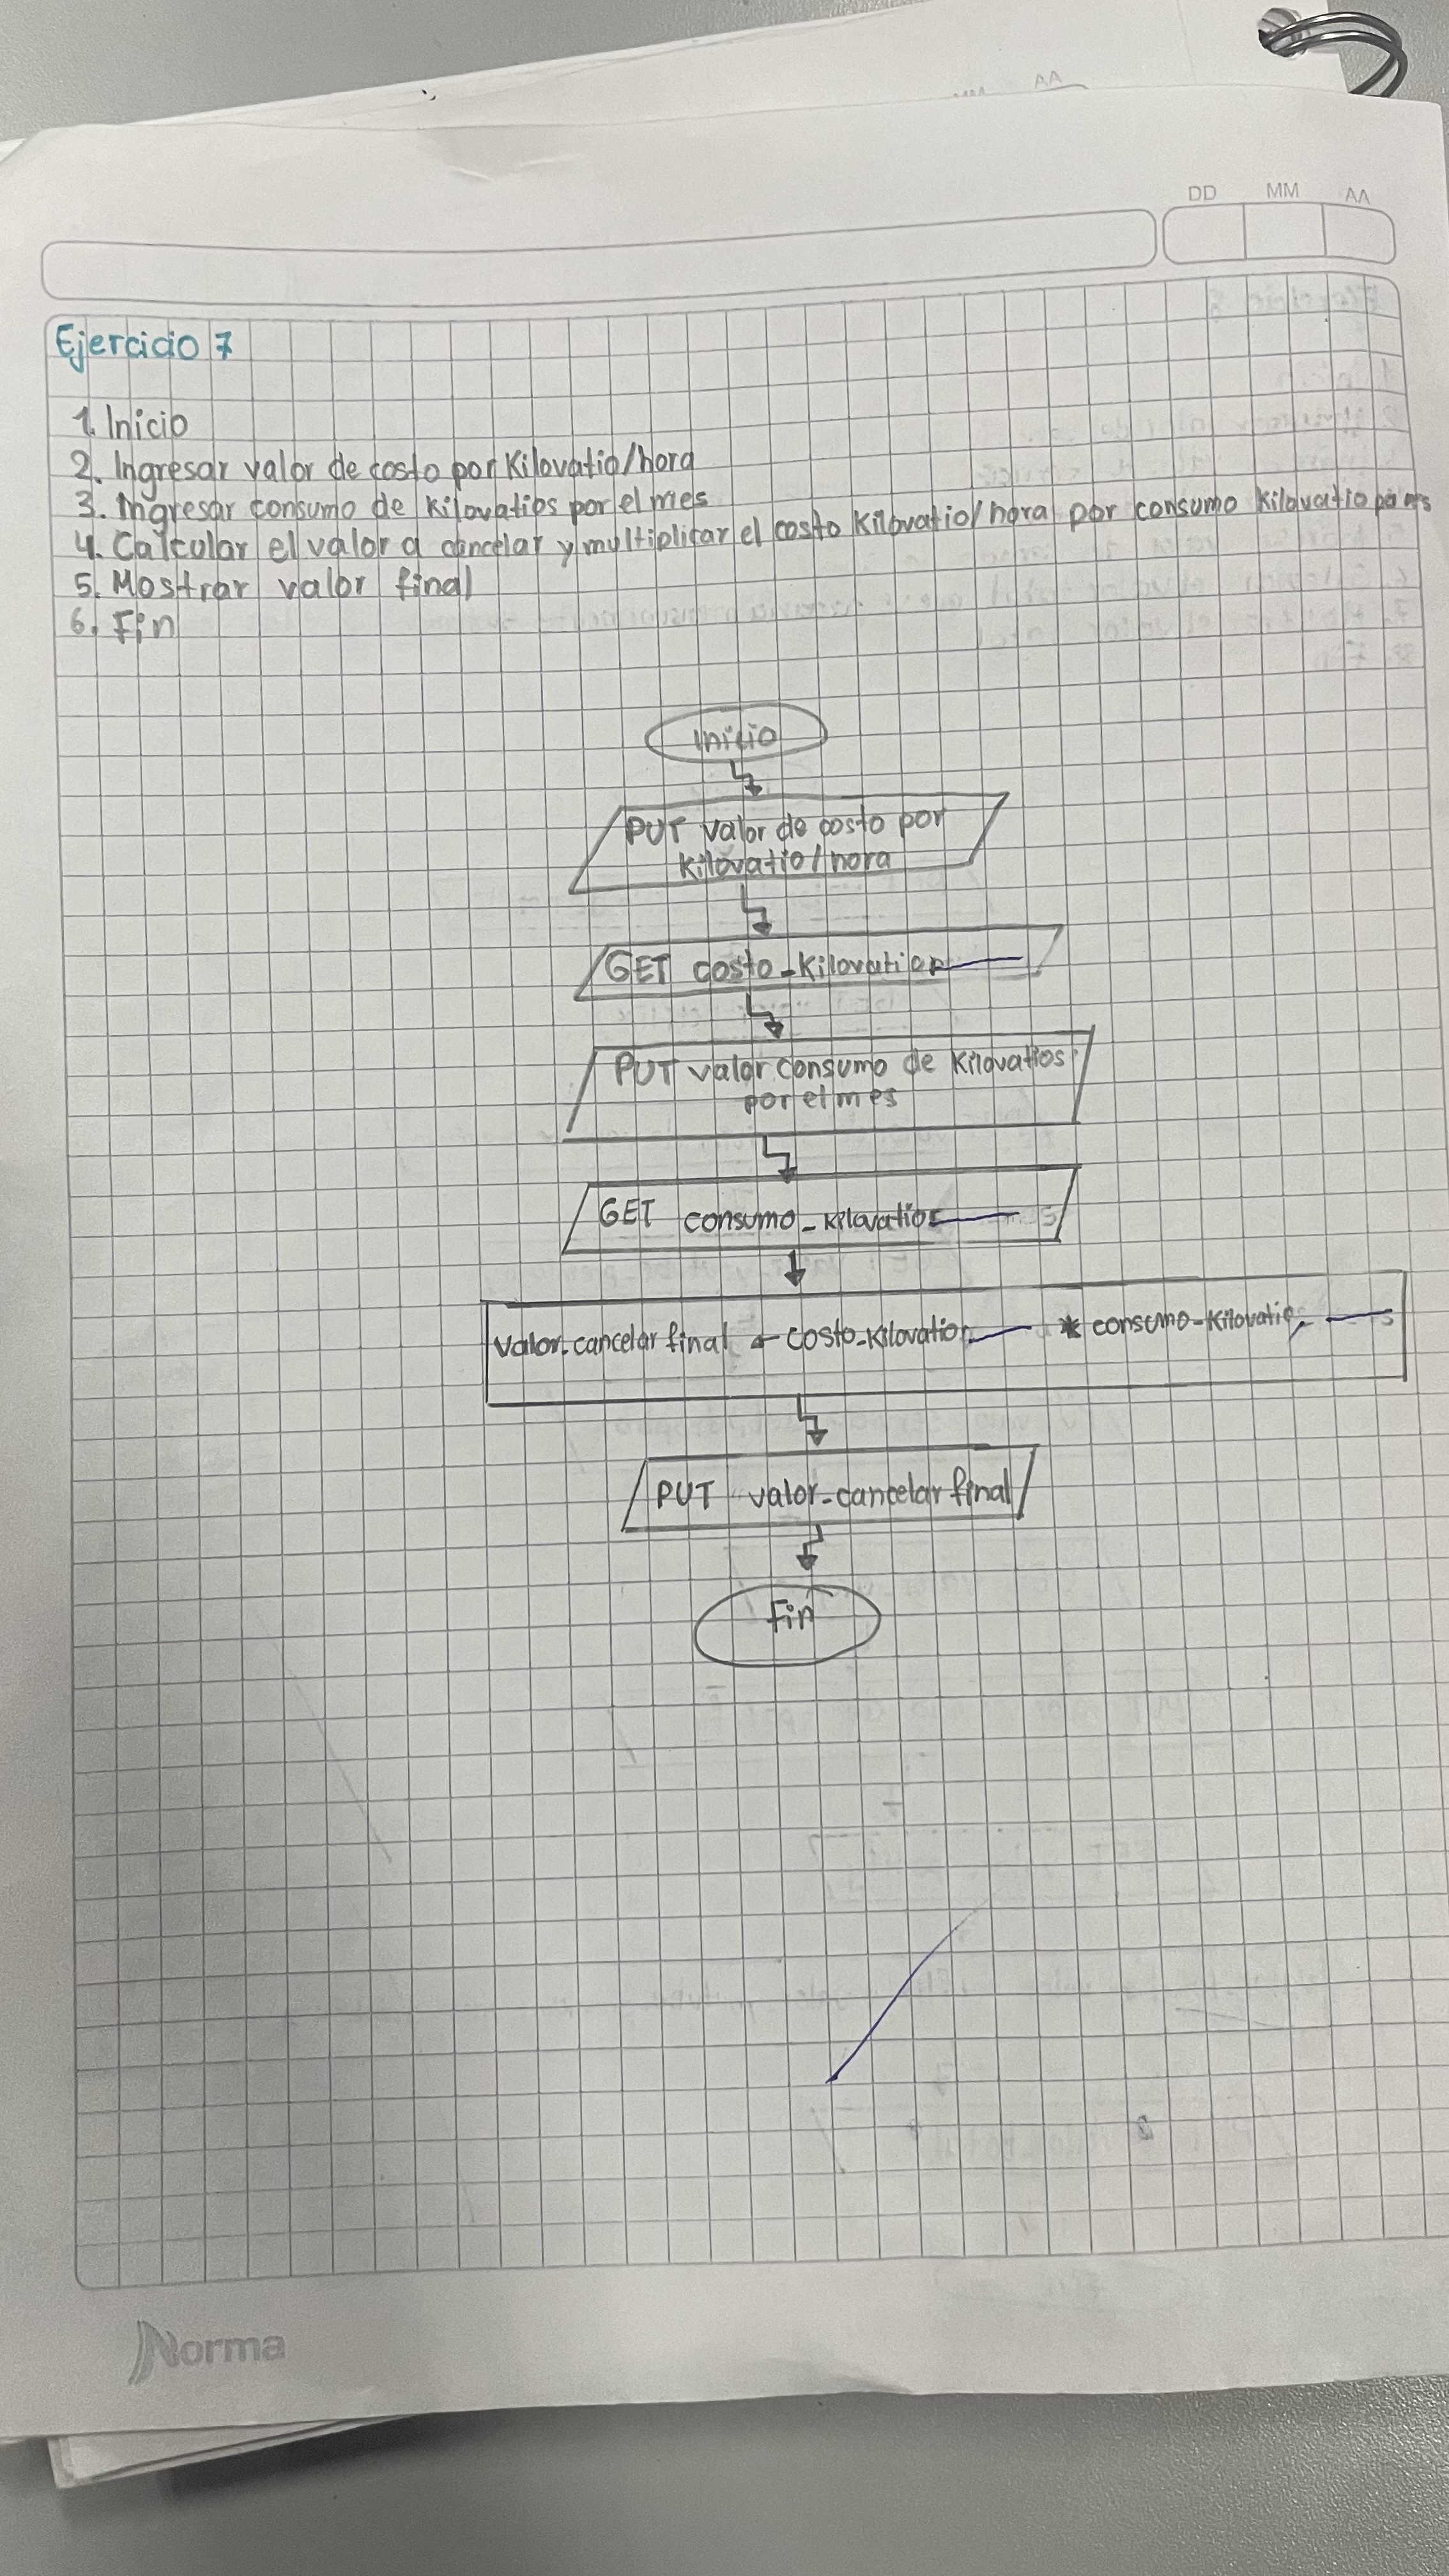 AA
DD MM AA
Ejercicio 7
1. Inicio
2. Ingresar valor de costo por Kilovatio/hora
3. Ingresar consumo de Kilovatios por el mes
4. Calcular el valor a cancelar y multiplicar el costo Kilovatio/hora por consumo Kilovatio
5. Mostrar valor final
6. Fin
Inicio
PUT valor de costo por
Kilovatio/hora
GET costo_Kilovatio
PUT valor consumo de Kilovatios
por el mes
GET consumo_Kilovatio
Valor_cancelar final ← costo_Kilovatio * consumo_Kilovatio
PUT valor_cancelar final
Fin
Norma